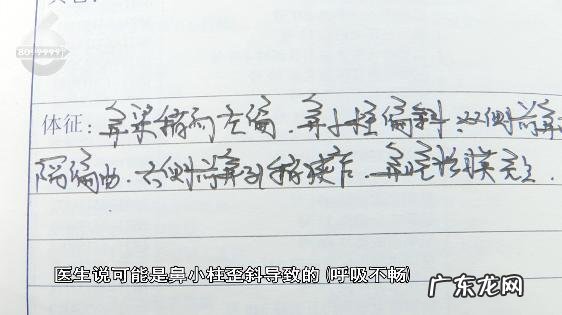 8099999
体征：鼻梁稍向左偏．鼻小柱偏斜．双侧鼻
隔偏曲．右侧鼻孔稍狭窄．鼻腔粘膜充血．
医生说可能是鼻小柱歪斜导致的（呼吸不畅）
广东龙网